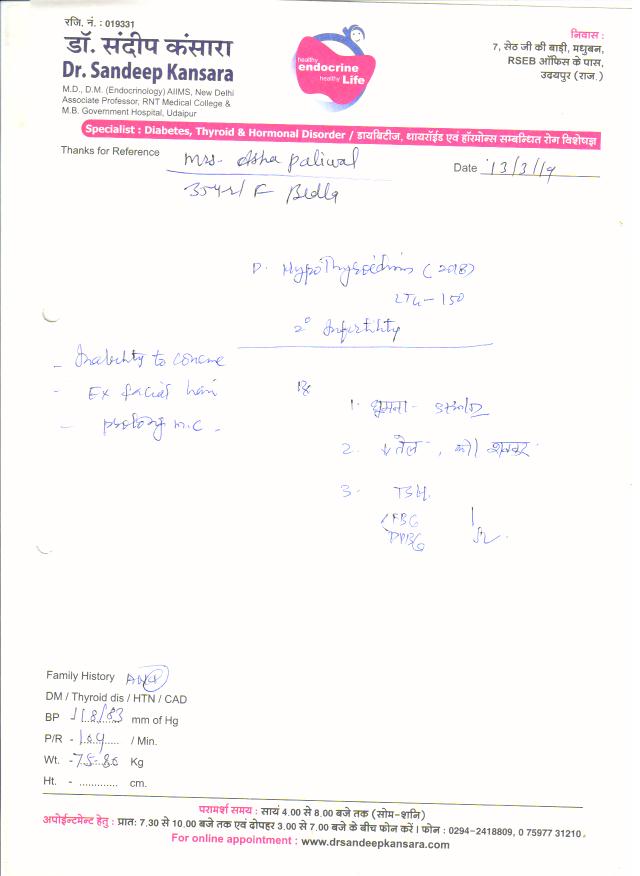 रजि. नं. : 019331
डॉ. संदीप कंसारा
Dr. Sandeep Kansara
M.D., D.M. (Endocrinology) AIIMS, New Delhi
Associate Professor, RNT Medical College &
M.B. Government Hospital, Udaipur
healthy
endocrine
healthy Life
निवास :
7, सेठ जी की बाड़ी, मधुबन,
RSEB ऑफिस के पास,
उदयपुर (राज.)
Specialist : Diabetes, Thyroid & Hormonal Disorder / डायबिटीज, थायरॉईड एवं हॉरमोन्स सम्बन्धित रोग विशेषज्ञ
Thanks for Reference Mrs. Asha Paliwal
Date 13/3/19
35yr/F Bedla
Hypothyroidism (2018)
LT4-150
2° Infertility
- Inability to conceive
- Ex facial hair
- prolong m.c -
Rx
1. घूमना -
2. ↓ तेल, घी, शक्कर
3. TSH
FBG
PPBG
Family History
DM / Thyroid dis / HTN / CAD
BP 118/83 mm of Hg
P/R - 104 / Min.
Wt. - 75.80 Kg
Ht. - ............. cm.
परामर्श समय : सायं 4.00 से 8.00 बजे तक (सोम-शनि)
अपोईन्टमेन्ट हेतु : प्रातः 7.30 से 10.00 बजे तक एवं दोपहर 3.00 से 7.00 बजे के बीच फोन करें। फोन : 0294-2418809, 0 75977 31210
For online appointment : www.drsandeepkansara.com